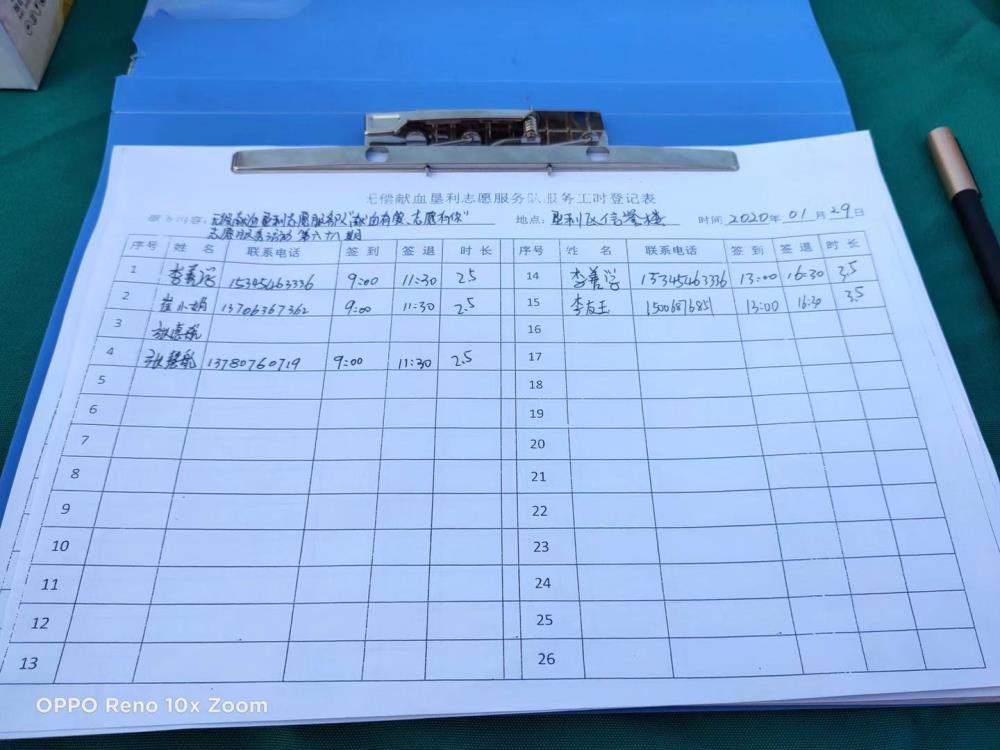 无偿献血垦利志愿服务队服务工时登记表
服务内容：无偿献血垦利志愿服务队"献血有爱、志愿有你" 地点：垦利区信誉楼 时间 2020年 01月 29日
志愿服务活动 第六十八期
序号 姓 名 联系电话 签 到 签 退 时 长 序号 姓 名 联系电话 签 到 签 退 时 长
1 李善学 15345463336 9:00 11:30 2.5 14 李善学 15345463336 13:00 16:30 3.5
2 崔小娟 13706367362 9:00 11:30 2.5 15 李友玉 1500687685 13:00 16:30 3.5
3 16
4 13780760719 9:00 11:30 2.5 17
5 18
6 19
7 20
8 21
9 22
10 23
11 24
12 25
13 26
OPPO Reno 10x Zoom